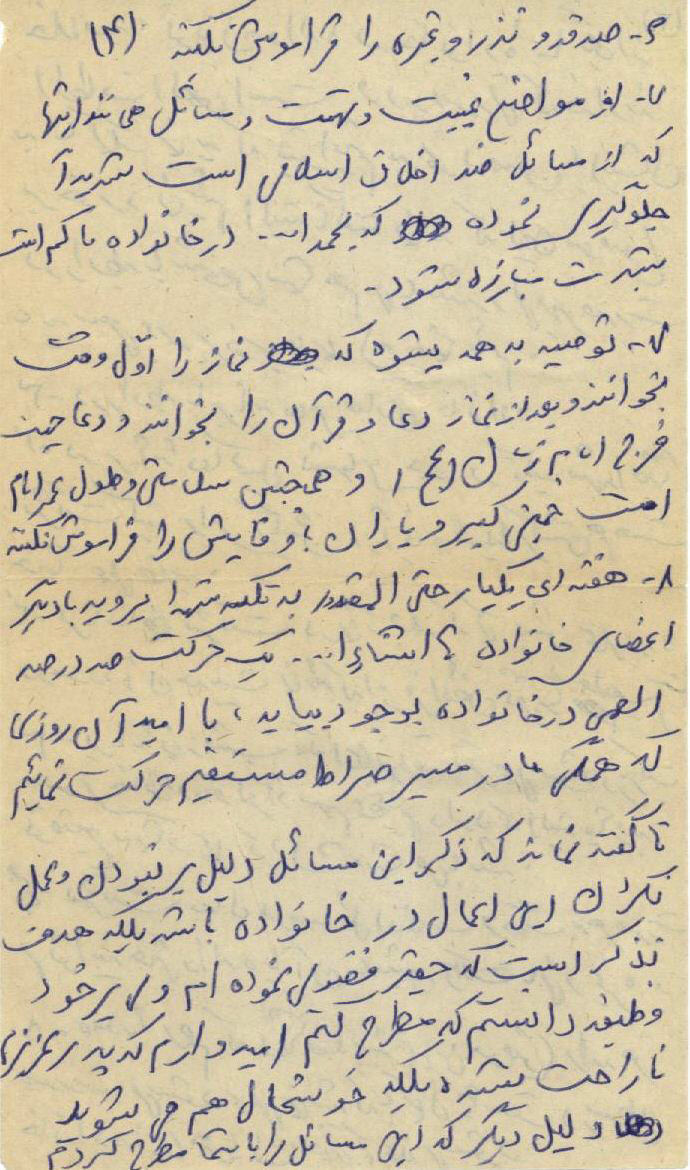 ۵- صدقه و نذر و غیره را فراموش نکنید (۳)
۶- از مواضع غیبت و تهمت و مسائل
که از مسائل ضد اخلاق اسلامی است شدیداً
جلوگیری نموده که بحمدا... در خانواده ما کم است
بشدت مبارزه شود.
۷- توصیه به همه میشود که نماز را اوّل وقت
بخوانند و بعد از نماز دعا و قرآن را بخوانند و دعا جهت
فرج امام زمان (عج) و همچنین سلامتی و طول عمر امام
امت خمینی کبیر و یاران باوفایش را فراموش نکنید
۸- هفته ای یکبار حتی المقدور به تکیه شهدا بروید با دیگر
اعضای خانواده تا انشاءا... یک حرکت صد در صد
الهی در خانواده بوجود بیاید، با امید آن روزی
که همگی ما در مسیر صراط مستقیم حرکت نمائیم
ناگفته نماند که ذکر این مسائل دلیل بر نبودن و عمل
نکردن این اعمال در خانواده باشد بلکه هدف
تذکر است که حقیر فضولی نموده ام ولی بر خود
وظیفه دانستم که مطرح کنم امیدوارم که پدر عزیزم
ناراحت نشده بلکه خوشحال هم می شوید
و دلیل دیگر که این مسائل را با شما مطرح کردم